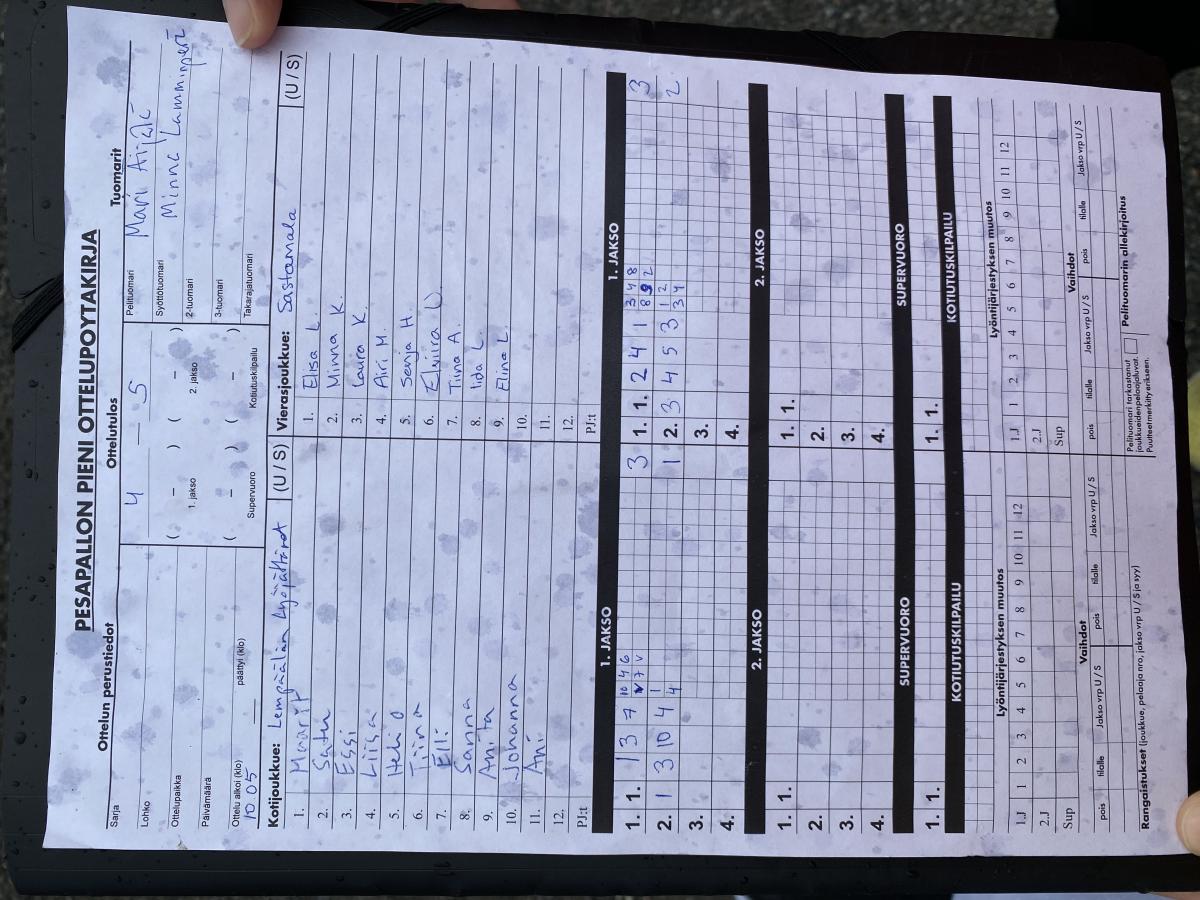 PESAPALLON PIENI OTTELUPÖYTÄKIRJA
Ottelun perustiedot
Ottelutulos
Tuomarit
Sarja
Lohko
Ottelupaikka
Päivämäärä
Ottelu alkoi (klo) päättyi (klo)
10.05
4 — 5
( – ) ( – )
1. jakso 2. jakso
( – ) ( – )
Supervuoro Kotiutuskilpailu
Pelituomari Mari
Syöttötuomari Minna Lamminperä
2-tuomari
3-tuomari
Takarajatuomari
Kotijoukkue: Lempäälän (U / S)
1. Maarit
2. Satu
3. Essi
4. Liisa
5. Heli O
6. Tiina
7. Elli
8. Sanna
9. Anita
10. Johanna
11. Ani
12.
PJ:t
Vierasjoukkue: Sastamala (U / S)
1. Elisa L.
2. Minna K.
3. Laura K.
4. Airi M.
5. Senja H.
6. Elviira U
7. Tiina A.
8. Iida L
9. Elina L.
10.
11.
12.
PJ:t
1. JAKSO 1. JAKSO
1. 1. 1 3 7 10 4 6 3
7 v
2. 1 3 10 4 1 1
4
3.
4.
1. 1. 2 4 1 3 4 8 3
8 9 2
2. 3 4 5 3 1 2 2
3 4
3.
4.
2. JAKSO 2. JAKSO
1. 1. 1. 1.
2. 2.
3. 3.
4. 4.
SUPERVUORO SUPERVUORO
1. 1. 1. 1.
KOTIUTUSKILPAILU KOTIUTUSKILPAILU
Lyöntijärjestyksen muutos
1.J 1 2 3 4 5 6 7 8 9 10 11 12
2.J
Sup
Vaihdot
pois tilalle Jakso vrp U / S pois tilalle Jakso vrp U / S
Lyöntijärjestyksen muutos
1.J 1 2 3 4 5 6 7 8 9 10 11 12
2.J
Sup
Vaihdot
pois tilalle Jakso vrp U / S pois tilalle Jakso vrp U / S
Rangaistukset (joukkue, pelaaja nro, jakso vrp U / S ja syy)
Pelituomari tarkastanut
joukkueiden pelaajaluvat.
Puutteet merkitty erikseen.
Pelituomarin allekirjoitus